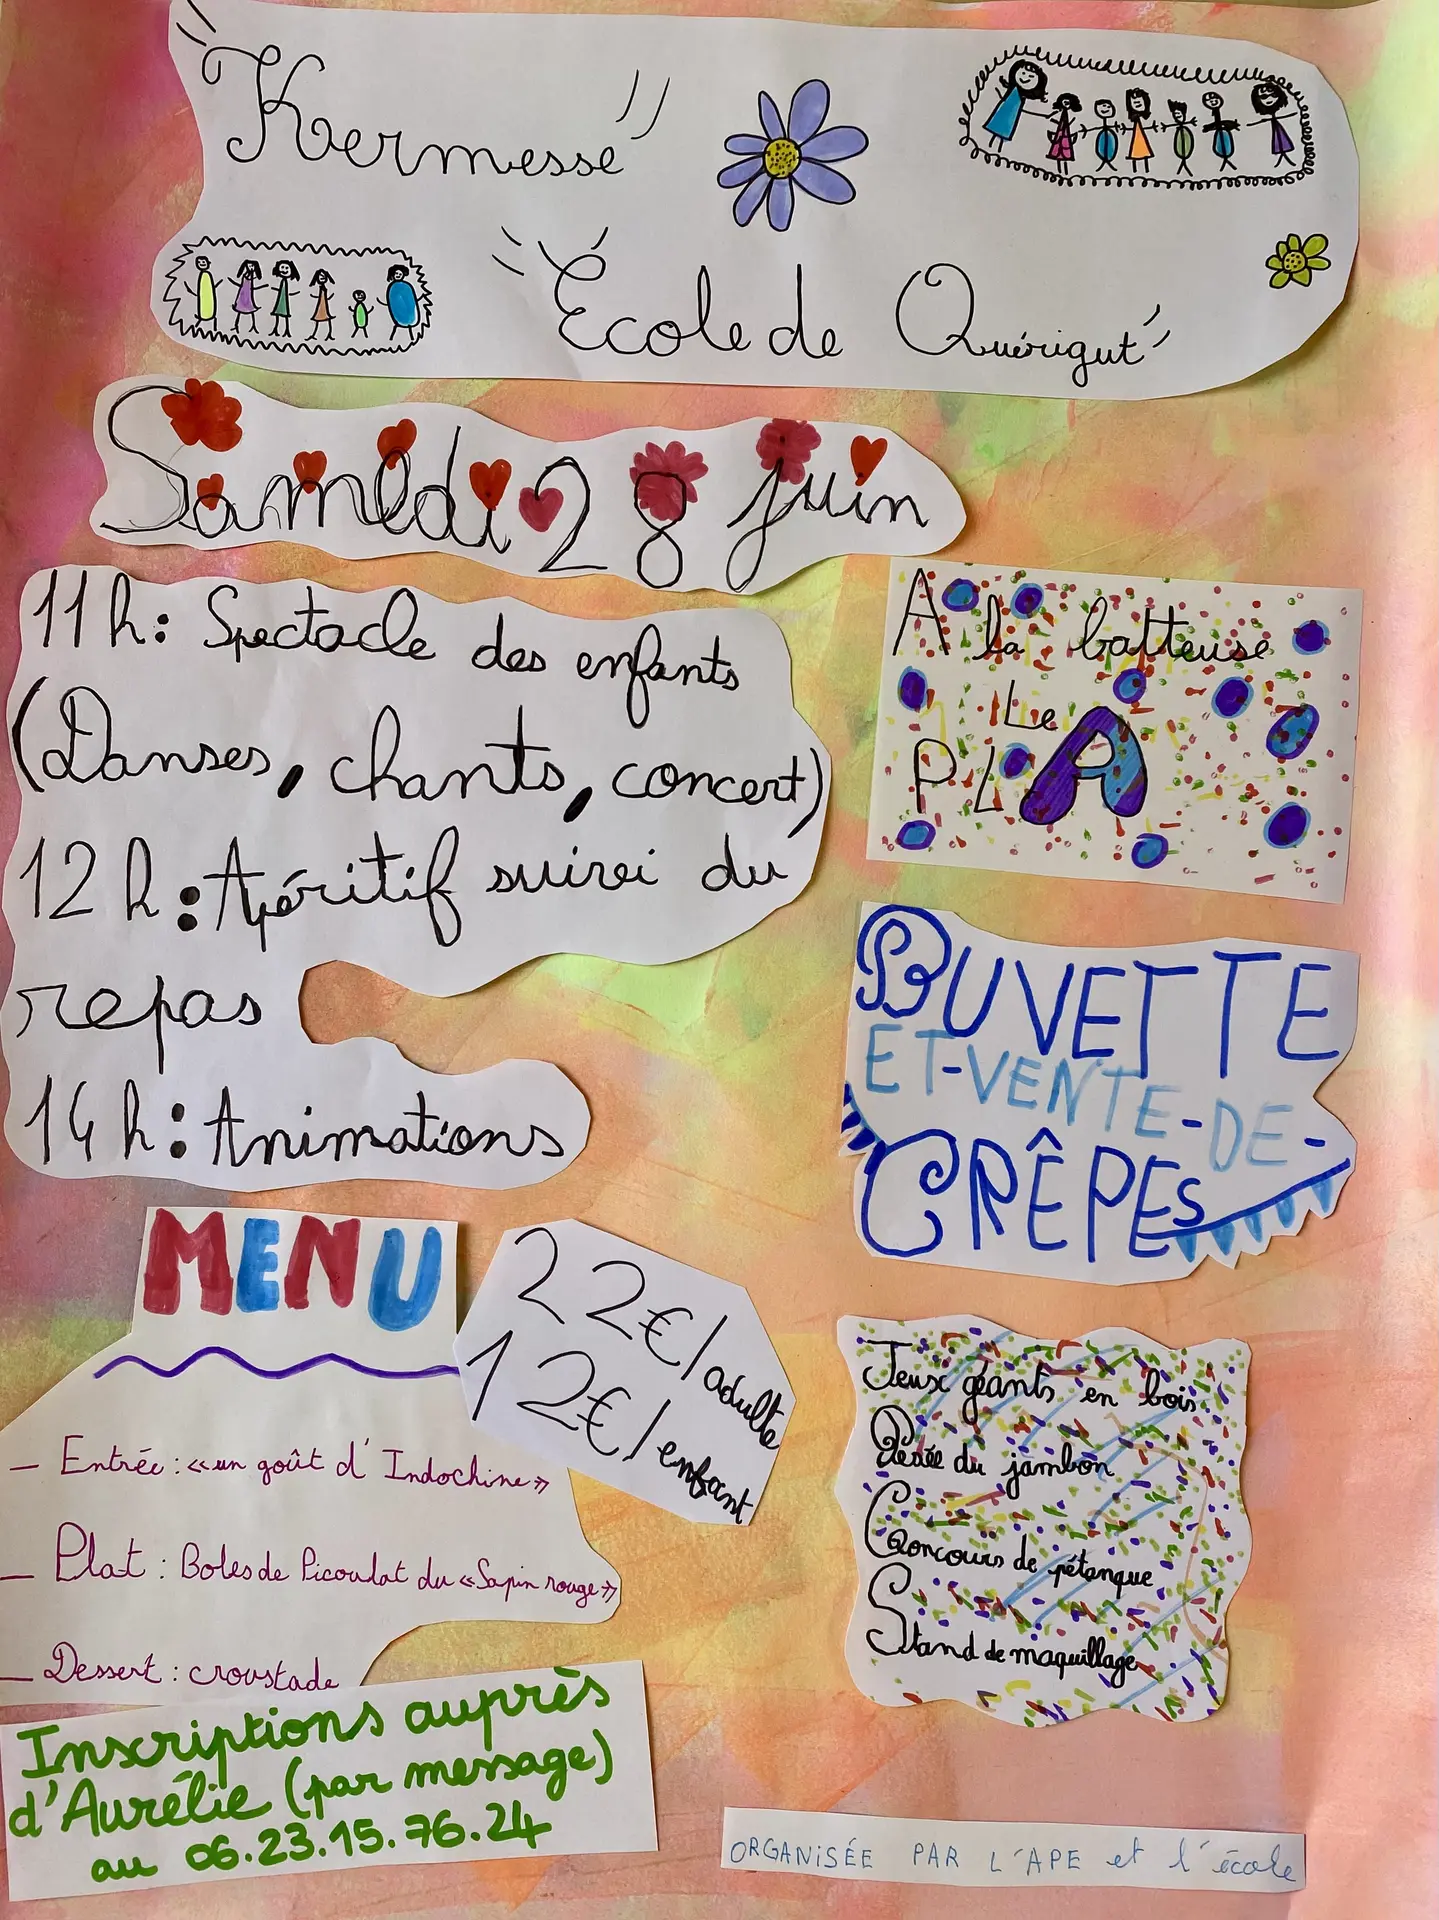 "Kermesse"
"École de Quérigut"
Samedi 28 juin
11h: Spectacle des enfants
(Danses, chants, concert)
12h: Apéritif suivi du
repas
14h: Animations
A la batteuse
Le
PLA
BUVETTE
ET-VENTE-DE-
CRÊPES
MENU
22€/adulte
12€/enfant
- Entrée : «un goût d'Indochine»
- Plat : Boles de Picoulat du «Sapin rouge»
- Dessert : croustade
Jeux géants en bois
Pesée du jambon
Concours de pétanque
Stand de maquillage
Inscriptions auprès
d'Aurélie (par message)
au 06.23.15.76.24
ORGANISÉE PAR L'APE et l'école